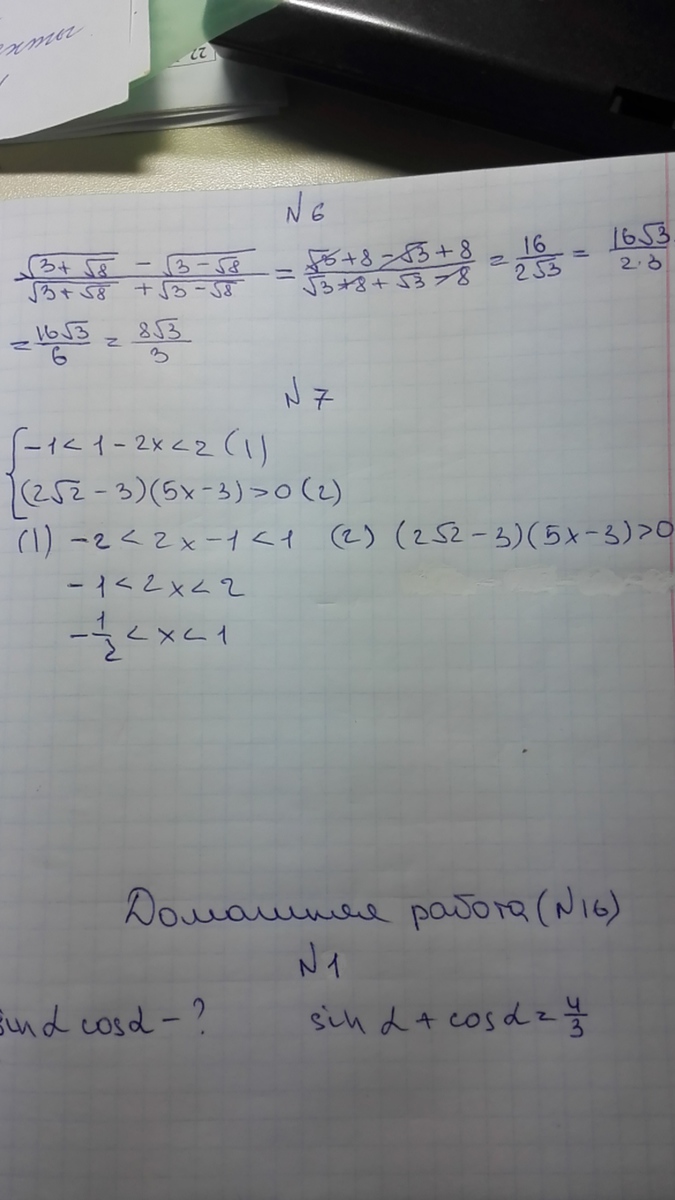 N 6
(√(3+√8) - √(3-√8))/(√(3+√8) + √(3-√8)) = (√3+8-√3+8)/(√3+8+√3-8) = 16/(2√3) = 16√3/(2·3)
= 16√3/6 = 8√3/3
N 7
{ -1 < 1 - 2x < 2 (1)
(2√2 - 3)(5x-3) > 0 (2)
(1) -2 < 2x - 1 < 1 (2) (2√2 - 3)(5x-3) > 0
-1 < 2x < 2
-1/2 < x < 1
Домашняя работа (N16)
N 1
sin α cos α - ? sin α + cos α = 4/3